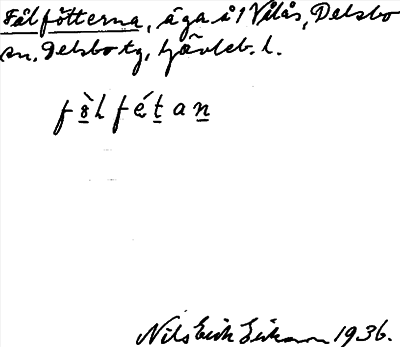 Fålfötterna, äga å 1 Vålås, Delsbo
sn, Delsbo tg, Gävleb. l.
fo̱̊̀lféṯaṉ
Nils Erik Eriksson 1936.